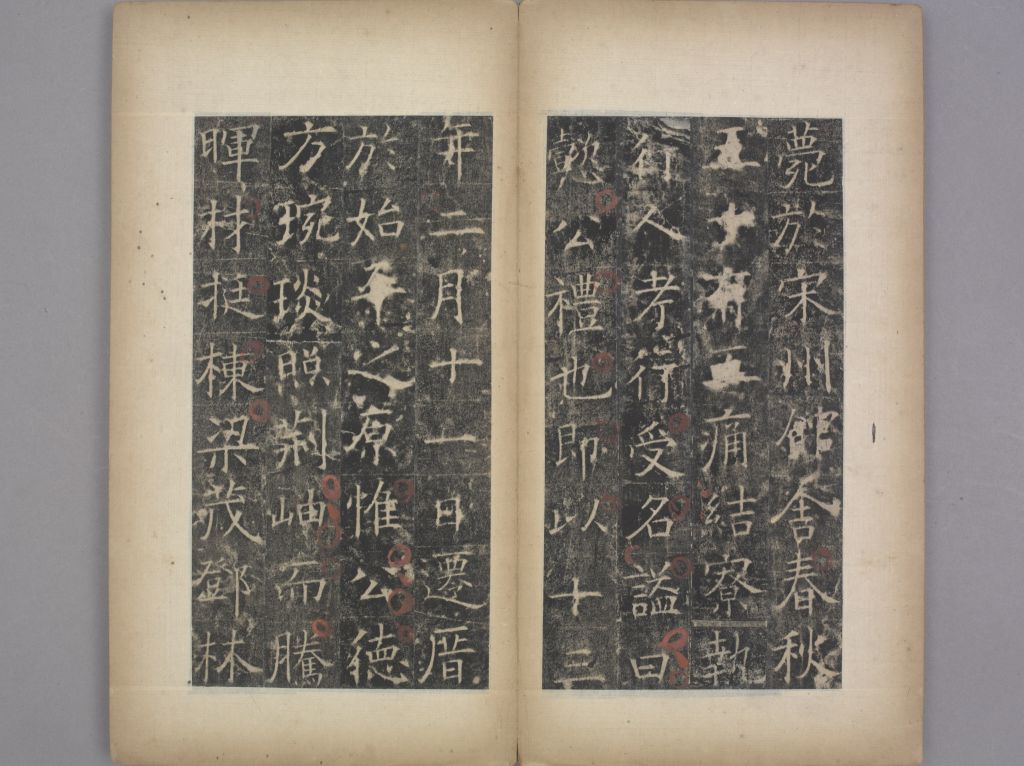 薨於宋州館舍春秋
五十有五痛結寮執
行人考行受名謚曰
懿公禮也即以十三
年二月十一日遷厝
於始平之原惟公德
方琬琰照剡岫而騰
暉材挺棟梁茂鄧林